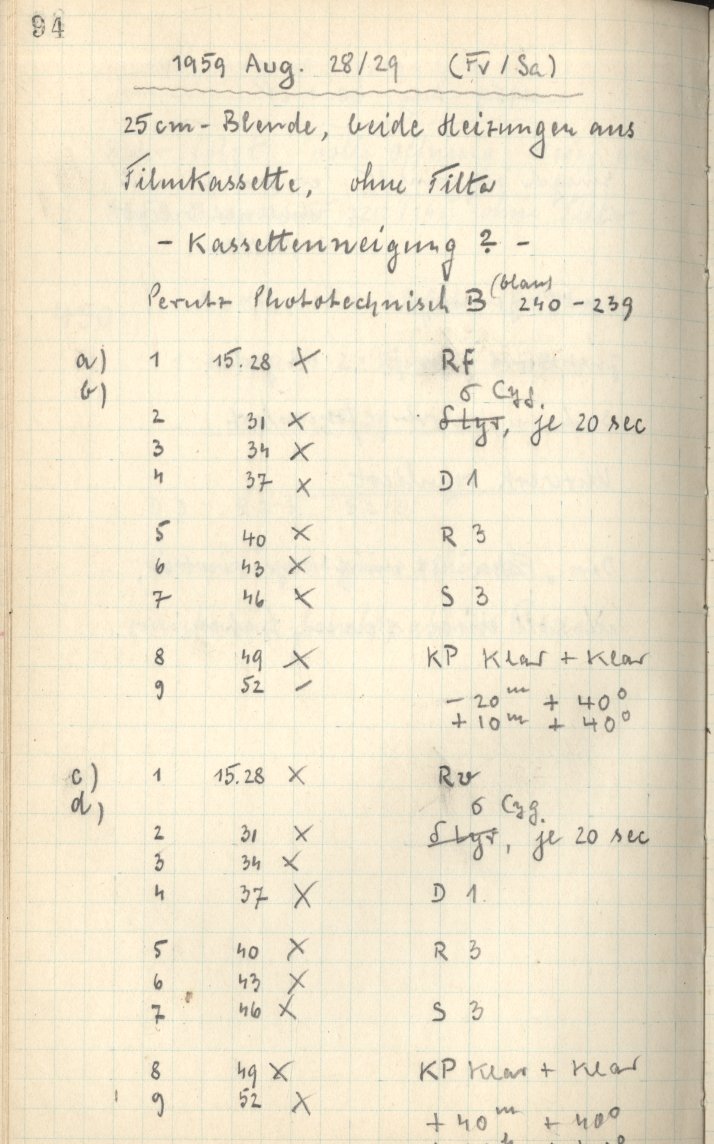 94
1959 Aug. 28/29 (Fr / Sa)
25cm - Blende, beide Heizungen aus
Filmkassette, ohne Filter
- Kassettenneigung ? -
Perutz Phototechnisch B (blau) 240 - 239
a) 1 15.28 X RF
b)
σ Cyg.
2 31 X δ Lyr, je 20 sec
3 34 X
4 37 X D 1
5 40 X R 3
6 43 X
7 46 X S 3
8 49 X KP Klar + Klar
9 52 –
- 20ᵐ + 40°
+ 10ᵐ + 40°
c) 1 15.28 X Rv
d)
σ Cyg.
2 31 X δ Lyr, je 20 sec
3 34 X
4 37 X D 1
5 40 X R 3
6 43 X
7 46 X S 3
8 49 X KP Klar + Klar
9 52 X
+ 40ᵐ + 40°